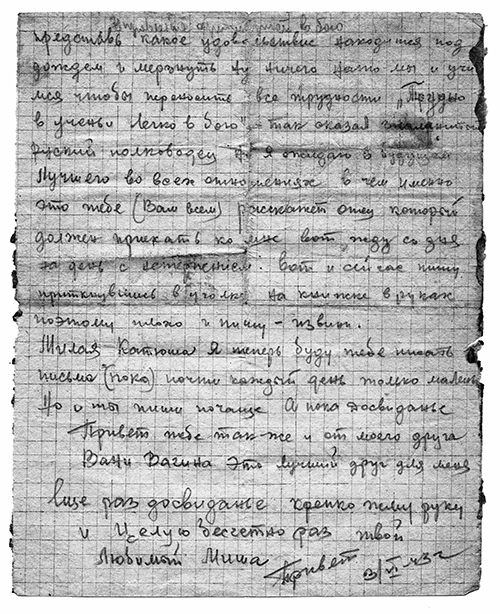 в бою
представь какое удовольствие находится под
дождем и мерзнуть Ну ничего на то мы и учи
мся чтобы переносить все трудности „Тяжело
в ученьи Легко в бою" – так сказал знаменитый
Руский полководец Но я ожидаю в будущем
Лучшего во всех отношениях в чем именно
это тебе (Вам всем) расскажет отец который
должен приехать ко мне вот жду со дня
на день с нетерпением. Вот и сейчас пишу
приткнувшись в уголке на книжке в руках
поэтому плохо и пишу – извини.
Милая Катюша я теперь буду тебе писать
письма (пока) почти каждый день только малень
Но и ты пиши почаще А пока досвиданье
Привет тебе так-же и от моего друга
Вани Вагина Это лучший друг для меня
Еще раз досвиданье крепко жму руку
и Целую бесчетно раз твой
Любимый Миша
Привет 3/VI-43г